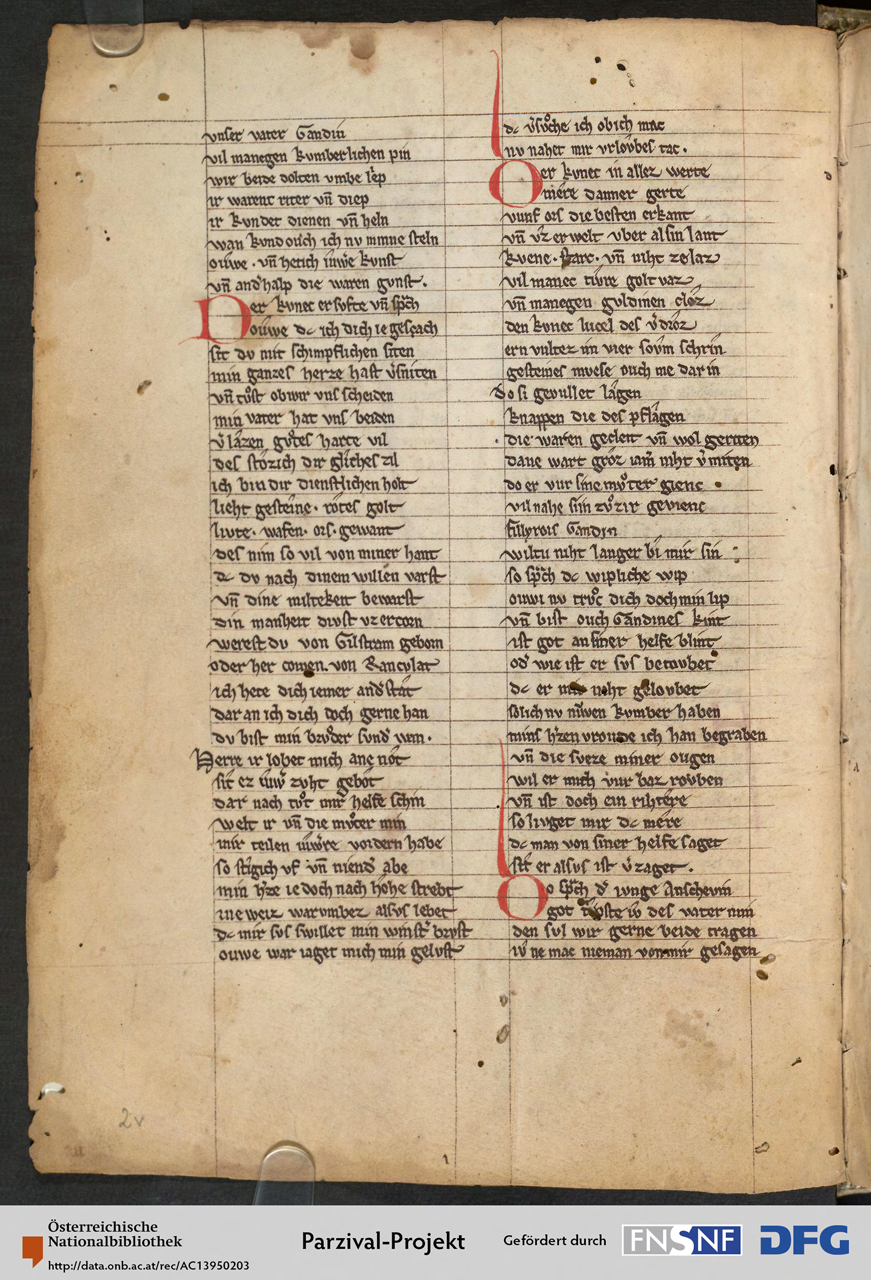 vnser vater Gandin
vil manegen kvmberlichen pin
wir beide dolten vmbe liep
ir warent riter vn̄ diep
ir kvndet dienen vn̄ heln
wan kvnd ouch ich nv minne steln
ouwe . vn̄ hetich iuwͤe kvnst
vn̄ andˢhalp die waren gvnst .
Der kvnec ersofte vn̄ spͣch
ouwe dc ich dich ie gesach
sit dv mir schimpflichen siten
min ganzes herze hast vˢsniten
vn̄ tvͦst ob wir vns scheiden
min vater hat vns beiden
vˢlazen gvͦtes harte vil
des stozich dir gliches zil
ich bin dir dienstlichen holt
lieht gesteine . rotes golt
livte . wafen . ors . gewant
des nim so vil von miner hant
dc dv nach dinem willen varst
vn̄ dine miltekeit bewarst
din manheit divst vz ercorn
werest dv von Gilstram geborn
oder her comen von Rancvlat
ich hete dich iemer andˢ stat
dar an ich dich doch gerne han
dv bist min brvͦder svndˢ wan .
Herre ir lobet mich ane not
sit ez iuwˢ zvht gebot
dar nach tvͦt mir helfe schin
welt ir vn̄ die mvͦter min
mir teilen iuwͤre vordern habe
so stigich vf vn̄ niendˢ abe
min hˢze iedoch nach hohe strebt
ine weiz warvmbez alsvs lebet
dc mir svs swillet min winstˢ brvst
ouwe war iaget mich min gelvst
dc vˢsvͦche ich ob ich mac
nv nahet mir vrlovbes tac .
Der kvnec in allez werte
mere danner gerte
vunf ors die besten erkant
vn̄ vz erwelt vber al sin lant
kvene . starc . vn̄ niht ze laz
vil manec tivre golt vaz
vn̄ manegen gvldinen cloz
den kvnec lucel des vˢdroz
ern vultez im vier sovm schrin
gesteines mvese ouch me dar in
Do si gevullet lagen
knappen die des pflagen
die waren gecleit vn̄ wol geriten
dane wart groz iamˢ niht vˢmiten
do er vur sine mvͦter gienc
vil nahe siin zvͦzir gevienc
fillyrois Gandin
wiltu niht langer bi mir sin
so spͣch dc wipliche wip
ouwi nv trvͦc dich doch min lip
vn̄ bist ouch Gandines kint
ist got an siner helfe blint
odˢ wie ist er svs betovbet
dc er mir niht gelovbet
solich nv niwen kvmber haben
mins hˢzen vrovde ich han begraben
vn̄ die sveze miner ougen
wil er mich vur baz rovben
vn̄ ist doch ein rihtere
so livget mir dc mere
dc man von siner helfe saget
sit er alsvs ist vˢzaget .
Do spͣch dˢ ivnge Anschevin
got troste iv des vater min
den svl wir gerne beide cragen
iv ne mac nieman von mir gesagen
2v
Österreichische
Nationalbibliothek
http://data.onb.ac.at/rec/AC13950203
Parzival-Projekt
Gefördert durch
FNSNF
DFG